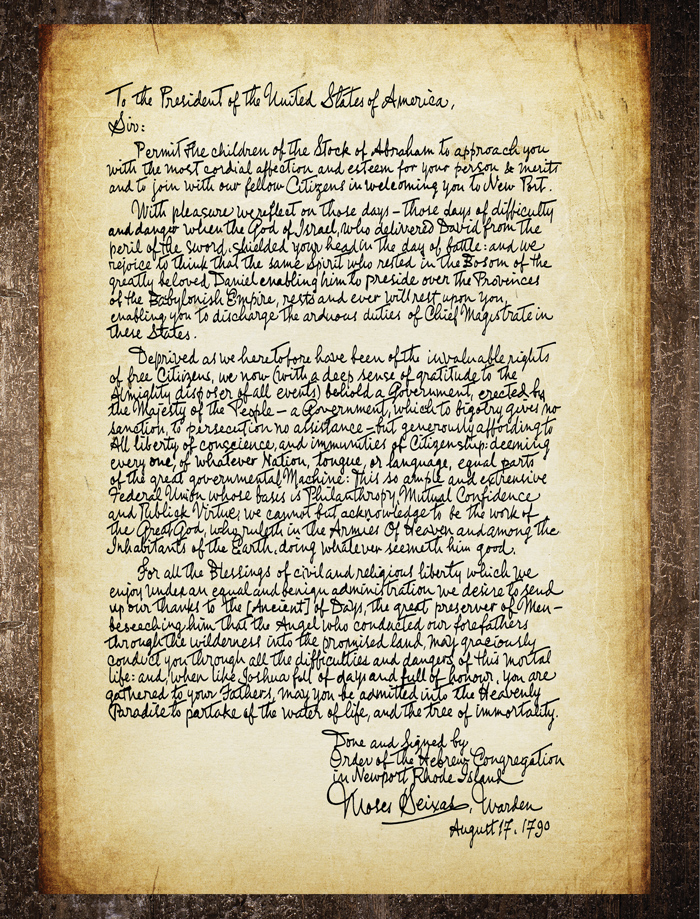 To the President of the United States of America,
Sir:
Permit the children of the Stock of Abraham to approach you
with the most cordial affection and esteem for your person & merits
and to join with our fellow Citizens in welcoming you to New Port.
With pleasure we reflect on those days – those days of difficulty
and danger when the God of Israel, who delivered David from the
peril of the sword, shielded your head in the day of battle: and we
rejoice to think that the same Spirit who rested in the Bosom of the
greatly beloved Daniel enabling him to preside over the Provinces
of the Babylonish Empire, rests and ever will rest upon you,
enabling you to discharge the arduous duties of Chief Magistrate in
these States.
Deprived as we heretofore have been of the invaluable rights
of free Citizens, we now (with a deep sense of gratitude to the
Almighty disposer of all events) behold a Government, erected by
the Majesty of the People – a Government, which to bigotry gives no
sanction, to persecution no assistance – but generously affording to
All liberty of conscience, and immunities of Citizenship: deeming
every one, of whatever Nation, tongue, or language, equal parts
of the great governmental Machine: This so ample and extensive
Federal Union whose basis is Philanthropy, Mutual Confidence
and Publick Virtue, we cannot but acknowledge to be the work of
the Great God, who ruleth in the Armies Of Heaven and among the
Inhabitants of the Earth, doing whatever seemeth him good.
For all the Blessings of civil and religious liberty which we
enjoy under an equal and benign administration we desire to send
up our thanks to the [Ancient] of Days, the great preserver of Men –
beseeching him that the Angel who conducted our forefathers
through the wilderness into the promised land, may graciously
conduct you through all the difficulties and dangers of this mortal
life: and, when like Joshua full of days and full of honour, you are
gathered to your Fathers, may you be admitted into the Heavenly
Paradise to partake of the water of life, and the tree of immortality.
Done and Signed by
Order of the Hebrew Congregation
in Newport Rhode Island
Moses Seixas, Warden
August 17, 1790